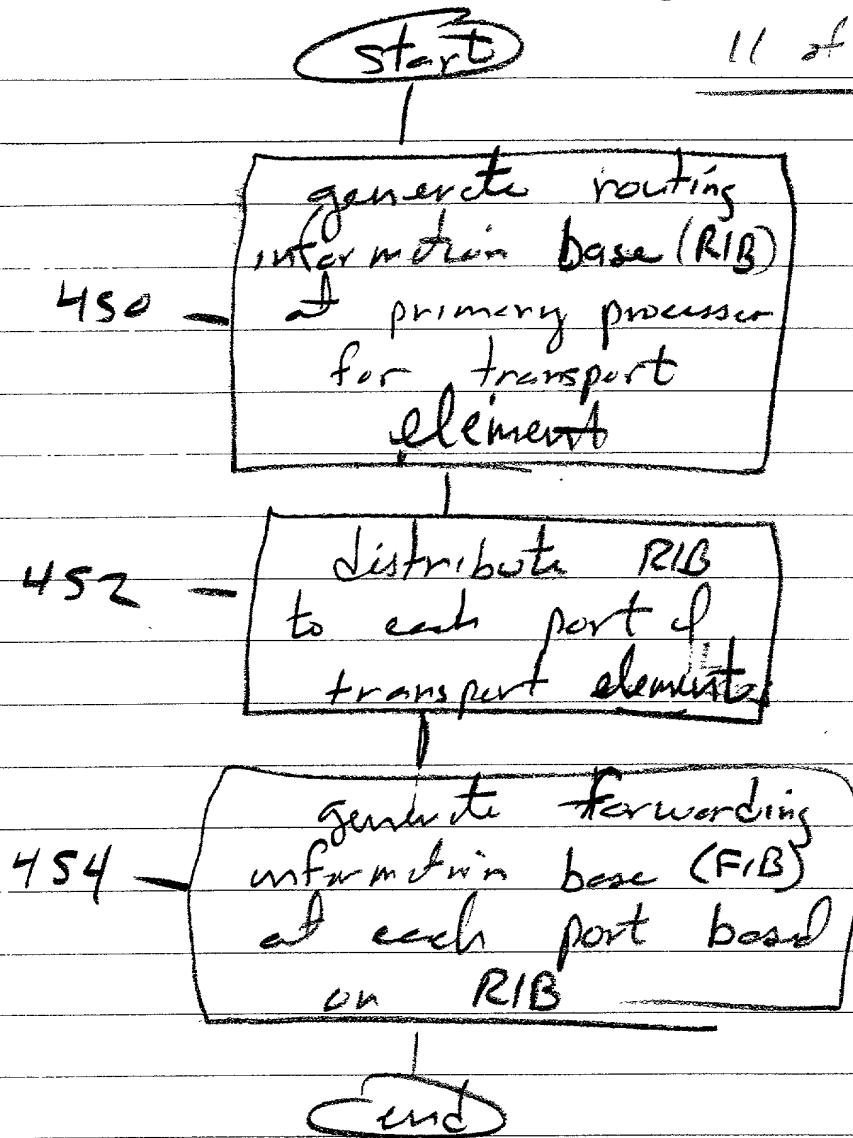 start
11 of
generate routing
information base (RIB)
450
at primary processor
for transport
element
452
distribute RIB
to each port of
transport element
454
generate forwarding
information base (FIB)
at each port based
on RIB
end